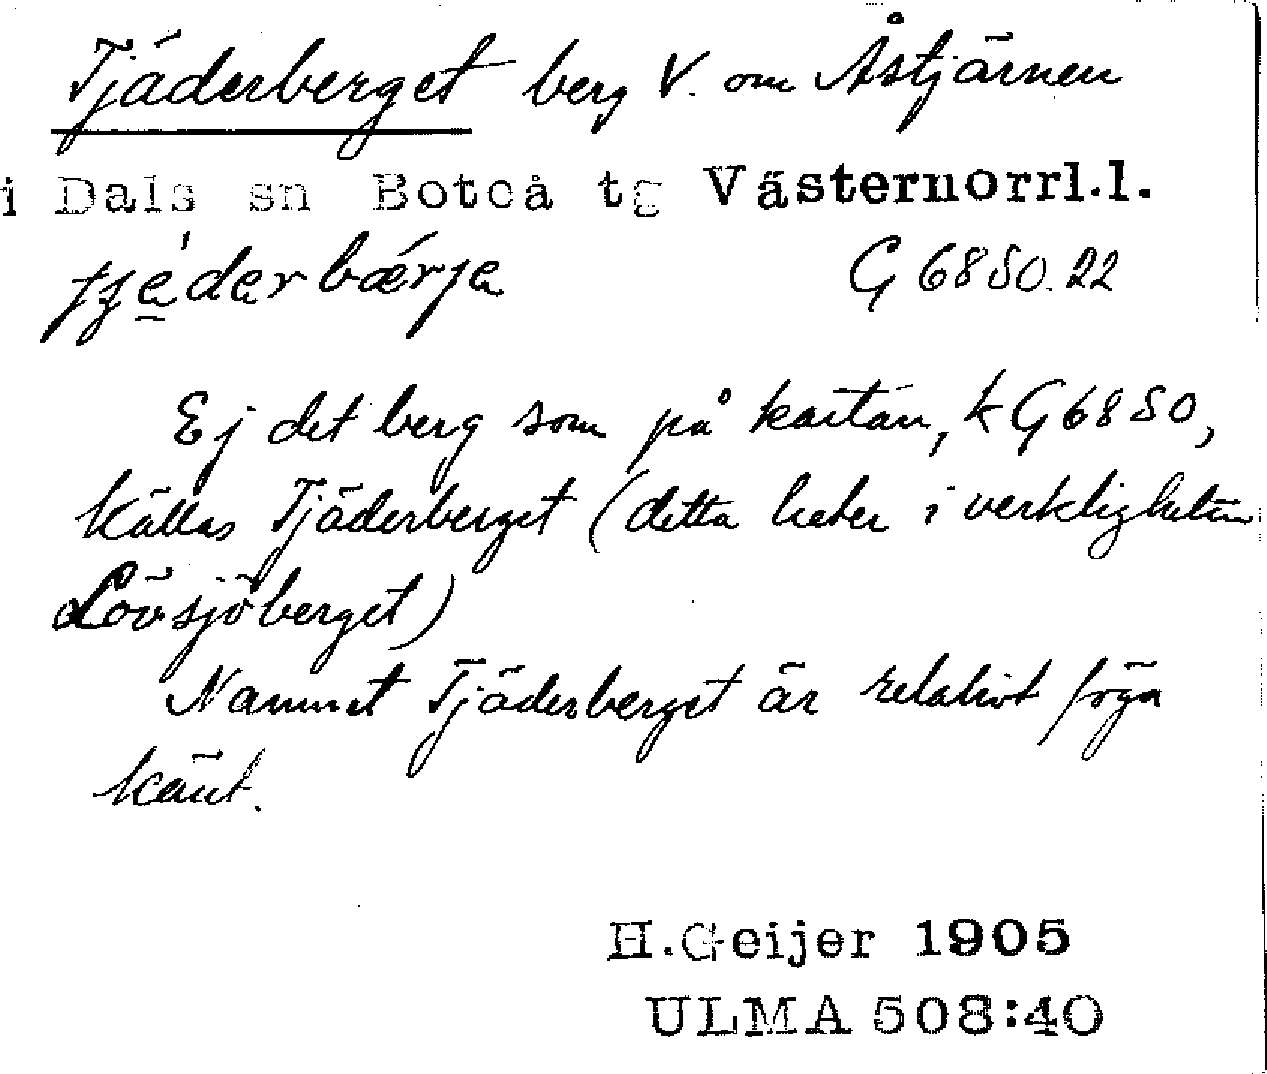 Tjäderberget berg V. om Åstjärnen
i Dals sn Boteå tg Västernorrl.l.
G 6850.22
Ej det berg som på kartan, k G6850,
kallas Tjäderberget (detta heter i verkligheten
Lövsjöberget)
Namnet Tjäderberget är relativt föga
känt.
H.Geijer 1905
ULMA 508:40